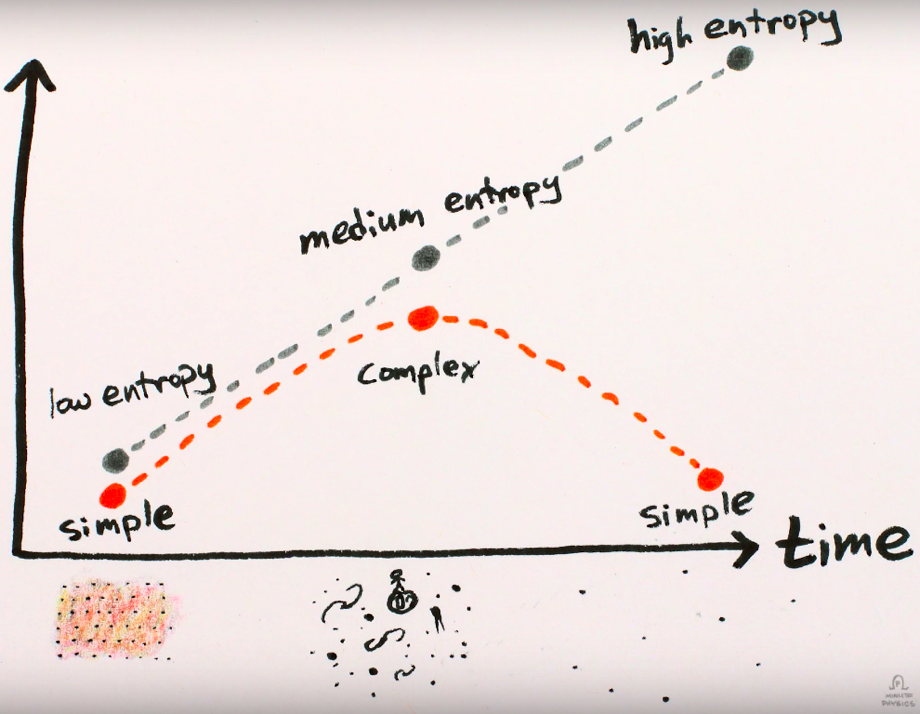 high entropy
medium entropy
complex
low entropy
simple
simple
time
MINUTE PHYSICS